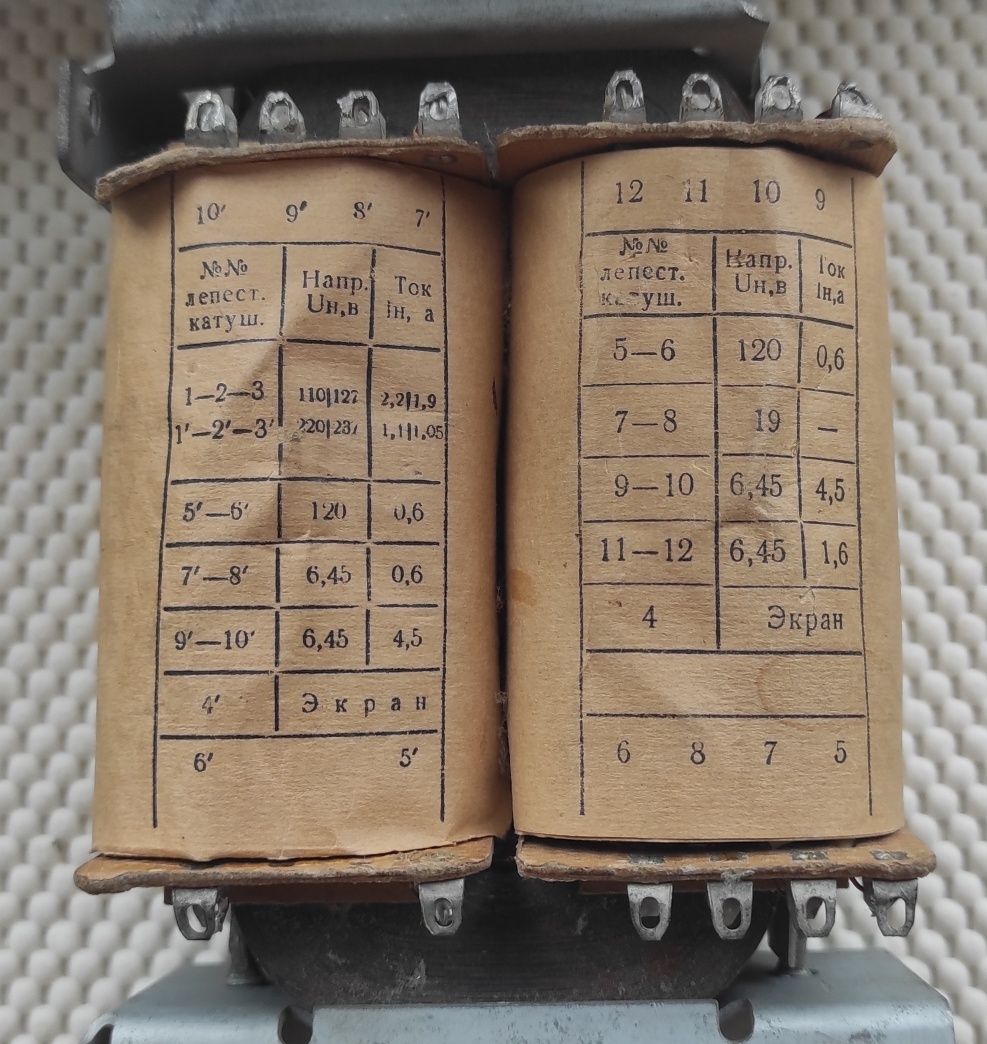 10′ 9′ 8′ 7′
№№ лепест. катуш. Напр. Uн,в Ток Iн, а
1—2—3 110|127 2,2|1,9
1′—2′—3′ 220|237 1,1|1,05
5′—6′ 120 0,6
7′—8′ 6,45 0,6
9′—10′ 6,45 4,5
4′ Экран
6′ 5′
12 11 10 9
№№ лепест. катуш. Напр. Uн,в Ток Iн,а
5—6 120 0,6
7—8 19 —
9—10 6,45 4,5
11—12 6,45 1,6
4 Экран
6 8 7 5